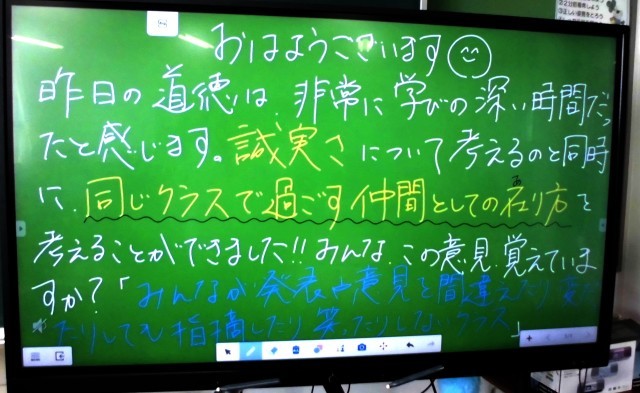 おはようございます
昨日の道徳は、非常に学びの深い時間だっ
たと感じます。誠実さについて考えるのと同時
に、同じクラスで過ごす仲間としての在り方を
考えることができました!!みんな、この意見、覚えていま
すか?「みんなが発表や意見を間違えたり変
たりしても指摘したり笑ったりしないクラス」